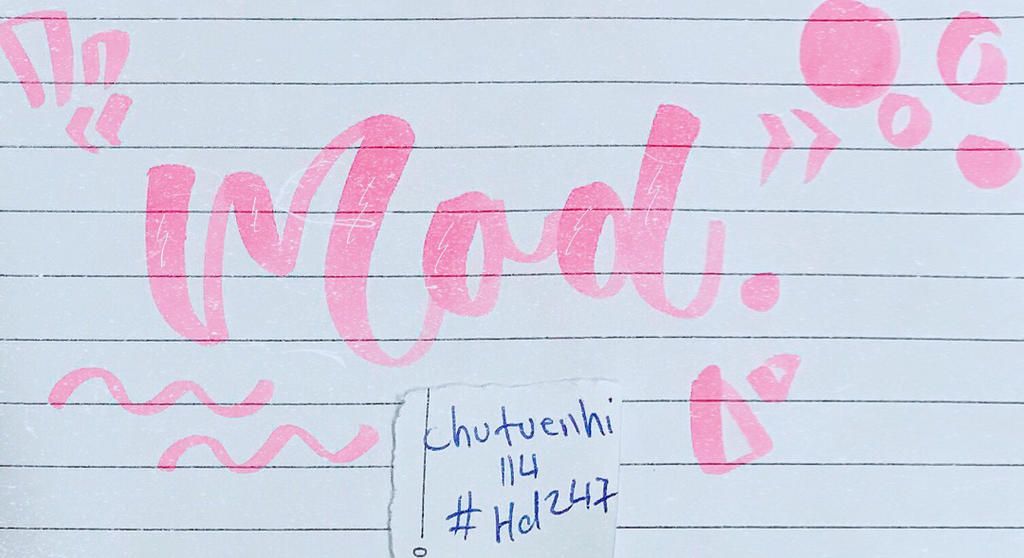 Mod.
chutuenhi
114
#Hd247